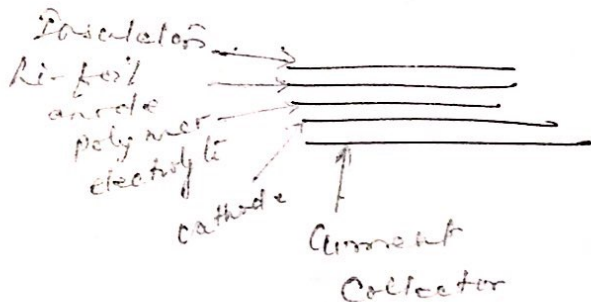 Insulators
Li-foil
anode
polymer
electrolyte
cathode
Current
Collector